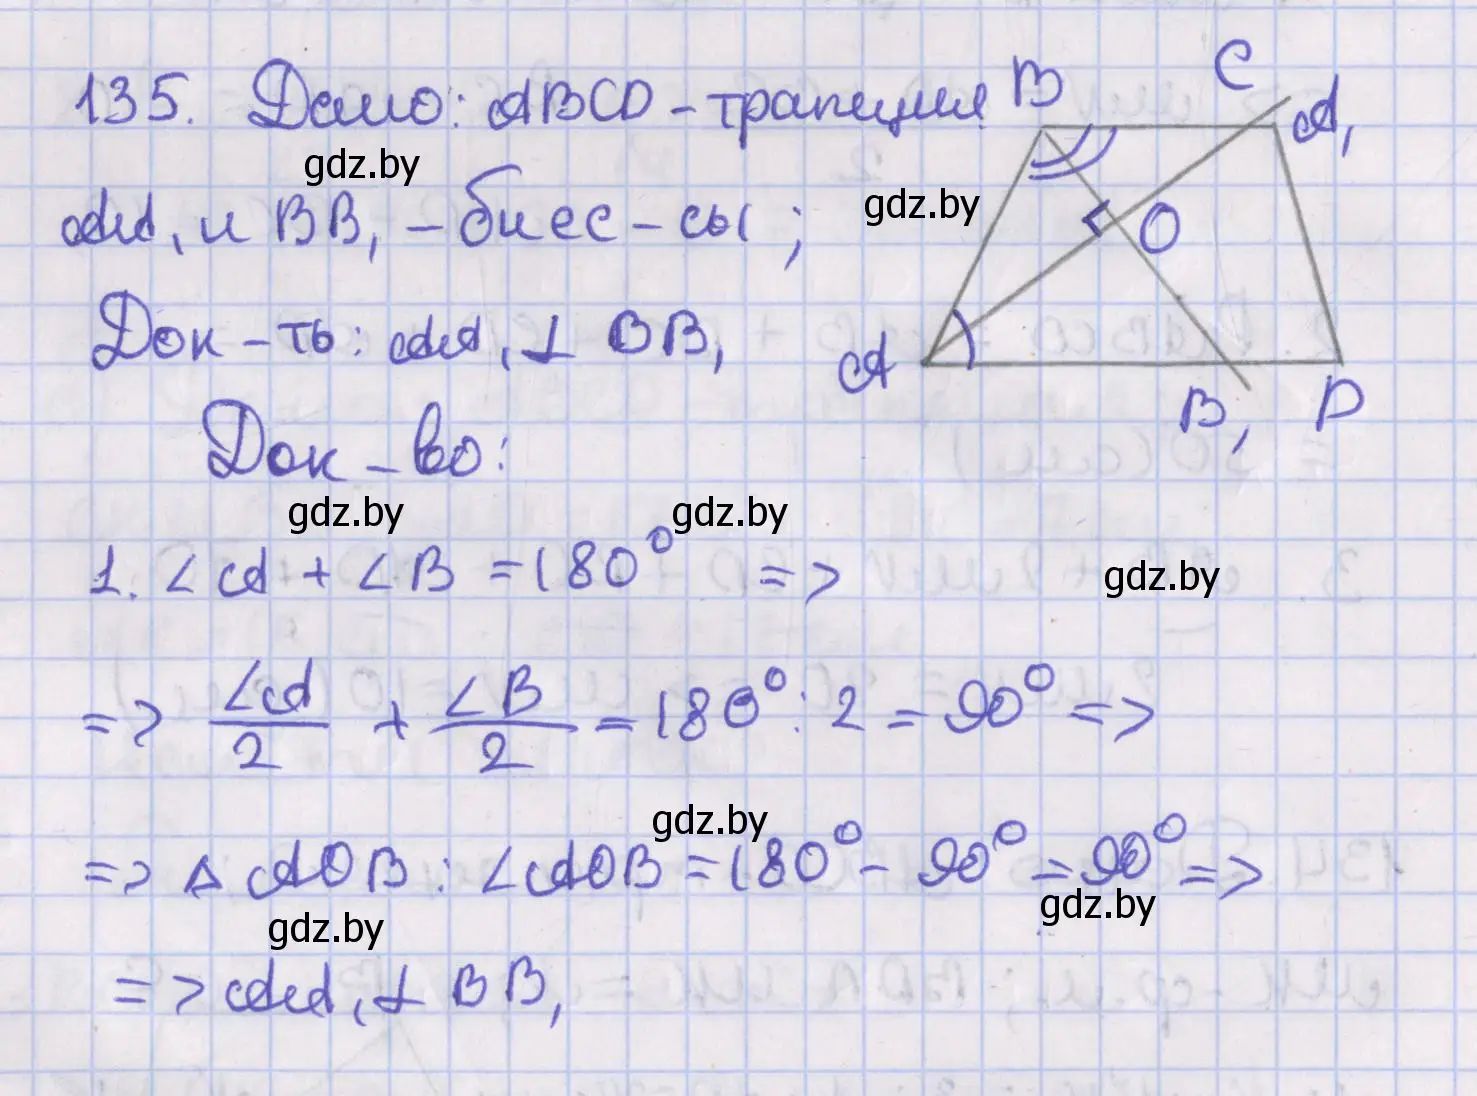 135. Дано: ABCD - трапеция
AA₁ и BB₁ - биес-сы;
Док-ть: AA₁ ⊥ BB₁
Док-во:
1. ∠A + ∠B = 180° =>
=> ∠A/2 + ∠B/2 = 180° : 2 = 90° =>
=> △AOB : ∠AOB = 180° - 90° = 90° =>
=> AA₁ ⊥ BB₁
B
C
A₁
O
A
B₁
D
gdz.by
gdz.by
gdz.by
gdz.by
gdz.by
gdz.by
gdz.by
gdz.by